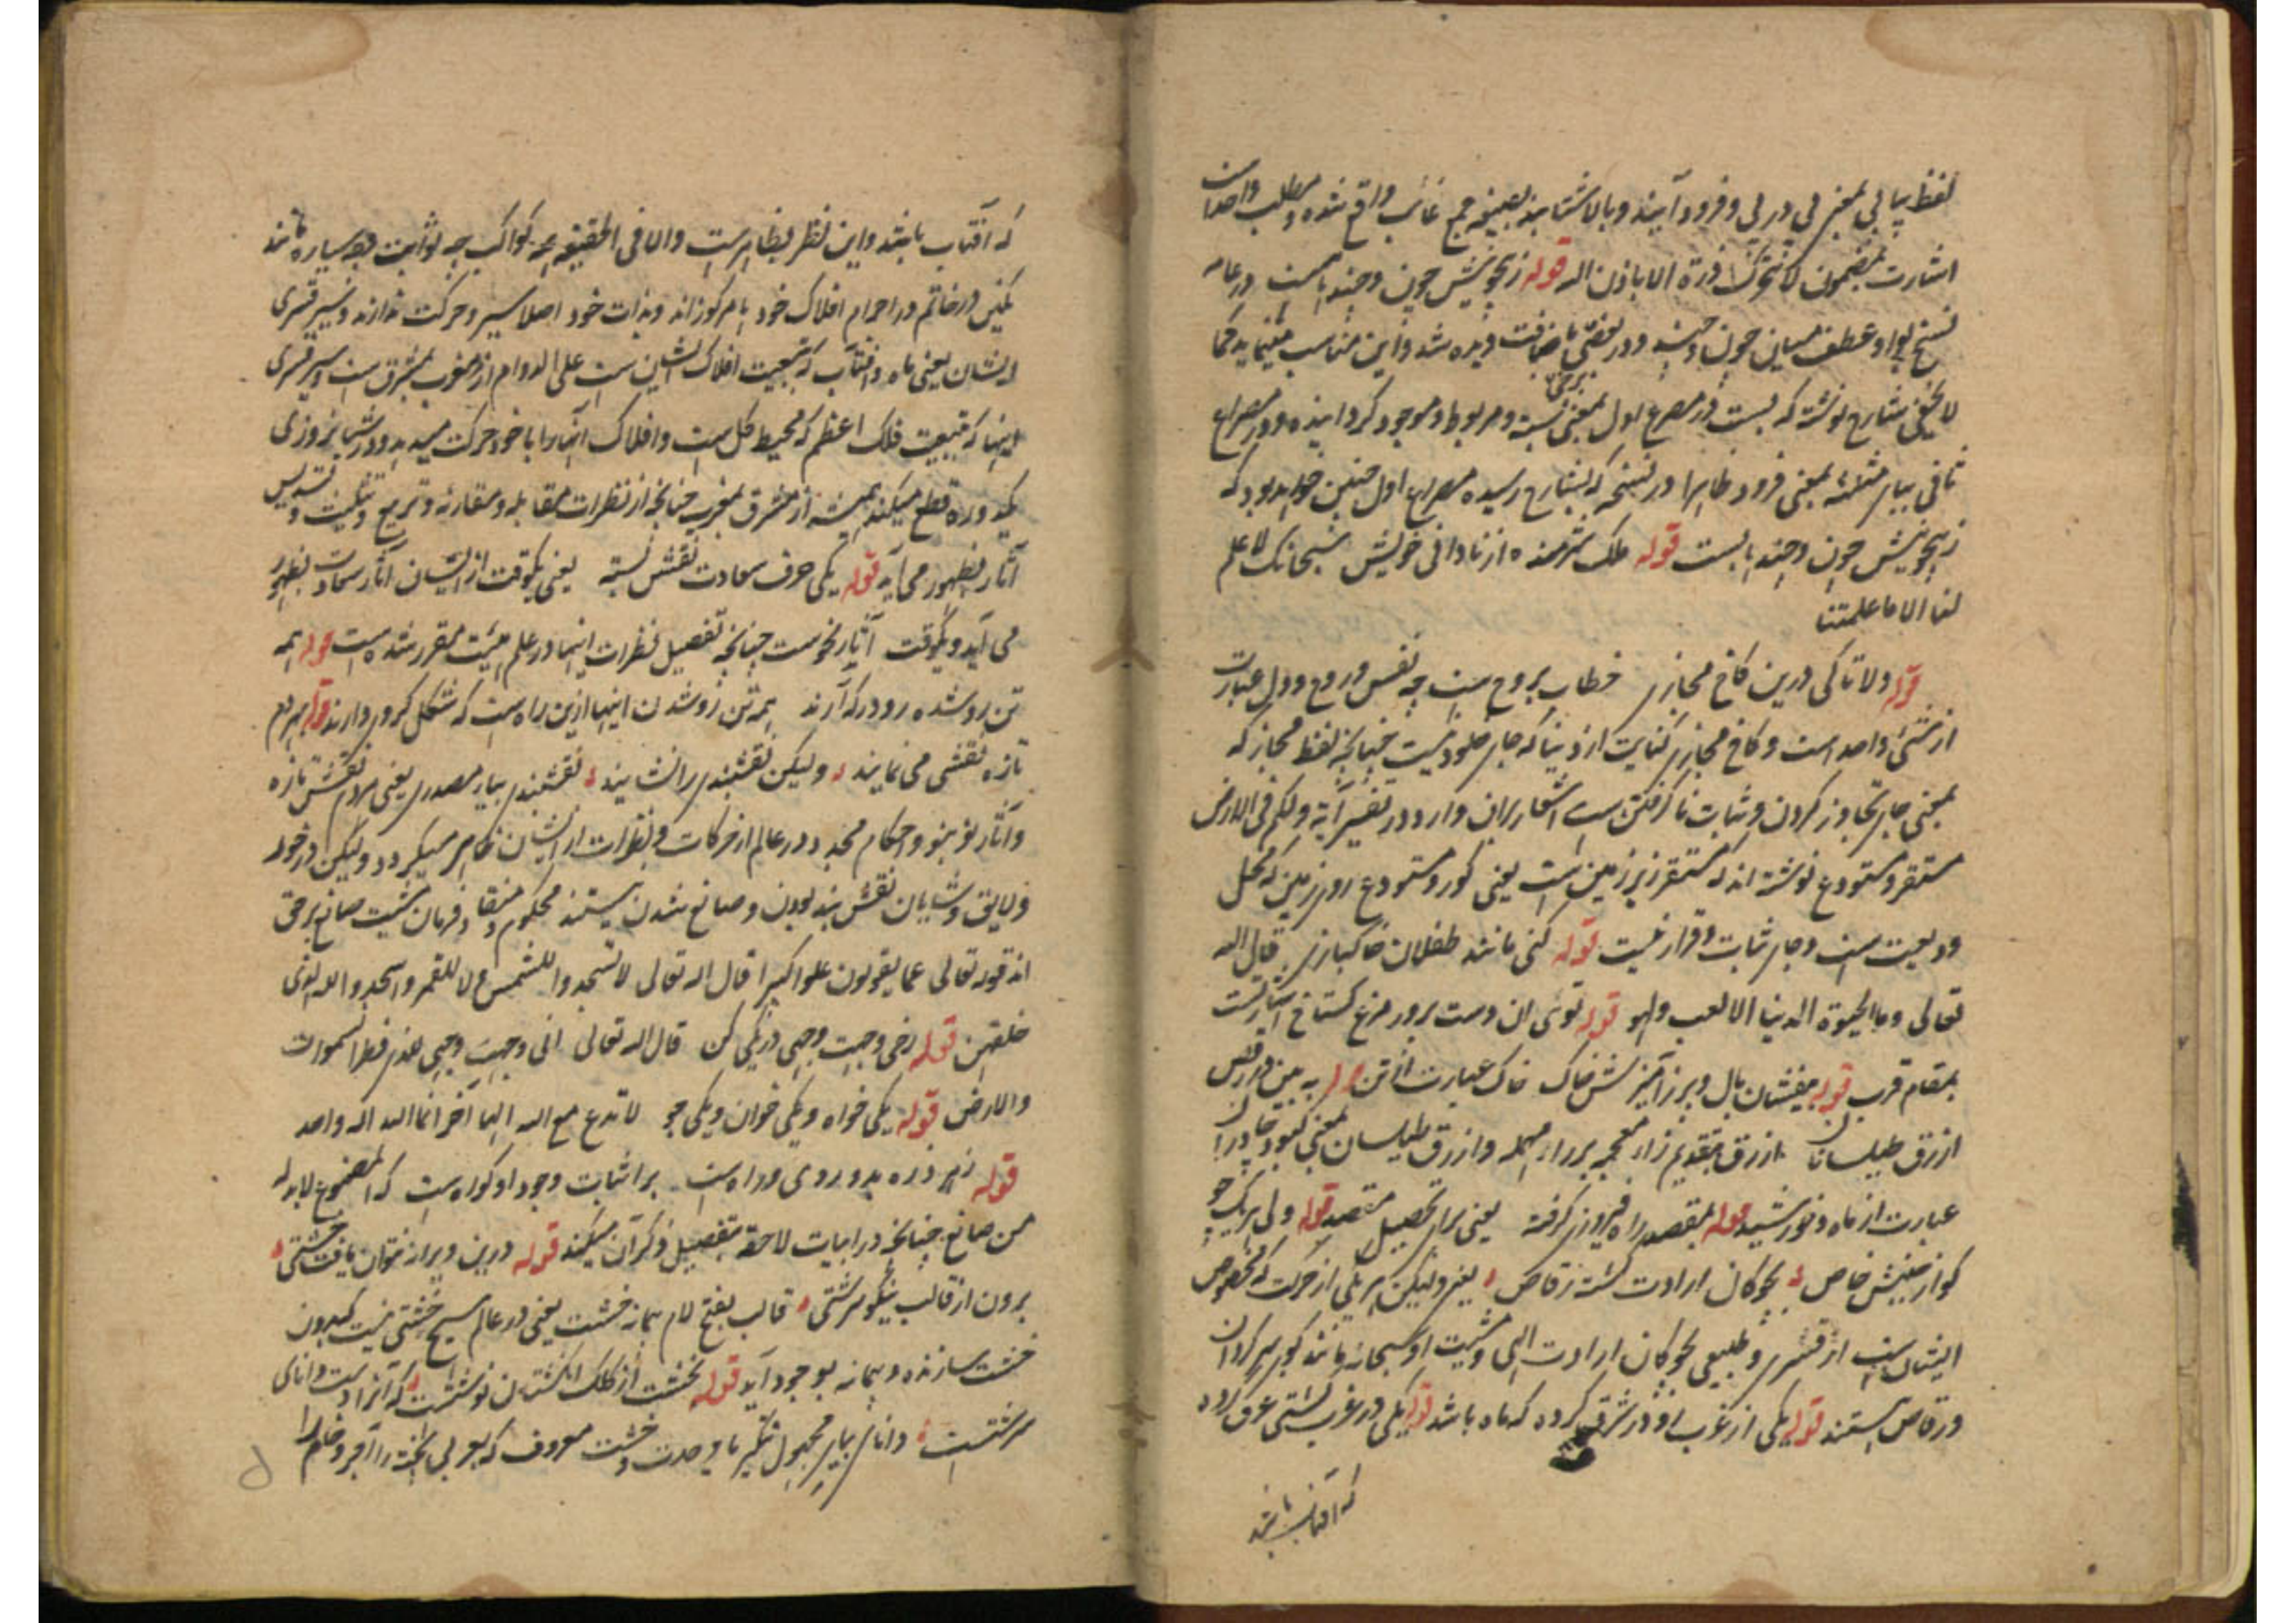 لفظ پیاپی بمعنی پی در پی و فرود آیند و بالا شتابند بصیغه جمع غائب واقع شده و مطلب واحد است
اشارت بمضمون لا تتحرک ذرة الا باذن الله قوله ز هیچونیش چون و چند بابست در عامه
نسخ بواو عطف میان چون و چند و در بعضی باضافت دیده شد و این مناسب مینماید کما
لا یخفی شارح نوشته که بست در مصرع اول بمعنی بسته و مربوط و موجود گردانیده و در مصراع
ثانی بیاء مثلثه بمعنی فرود ظاهرا در نسخه که بشارح رسیده مصراع اول چنین خواهد بود که
ز هیچونیش چون و چند بابست قوله ملک شرمنده از نادانی خویش سبحانک لا علم
لنا الا ما علمتنا
قوله دلا تا کی درین کاخ مجازی خطاب بروح است چه نفس و روح و دل عبارت
از شئ واحد است و کاخ مجازی کنایت از دنیا که جای خلود نیست چنانچه لفظ مجاز که
بمعنی جای تجاوز کردن و ثبات ناگرفتن است اشعار بران دارد در تفسیر آیة ولکم فی الارض
مستقر و مستودع نوشته اند که مستقر زیر زمین است یعنی گور و مستودع روی زمین که محل
ودیعت است و جای ثبات و قرار نیست قوله کنی مانند طفلان خاکبازی قال الله
تعالی وما الحیوة الدنیا الا لعب ولهو قوله توئی ان دست پرور مرغ گستاخ اشارتست
بمقام قرب قوله بیفشان بال و پر ز آمیزش خاک خاک عبارت از تن قوله به بین در رقص
ازرق طیلسانان ازرق بتقدیم زاء معجمه بر راء مهمله و ازرق طیلسان بمعنی کبود چادران
عبارت از ماه و خورشید قوله بمقصد راه فیروزی گرفته یعنی برای تحصیل مقصد قوله ولی هر یک چو
گو از جنبش خاص بچوگان ارادت گشته رقاص یعنی ولیکن هر یکی از حرکت که مخصوص
ایشان است از قسری و طبیعی بچوگان ارادت الهی و مشیت او سبحانه مانند گوی سرگردان
و رقاص هستند قوله یکی از غرب رو در شرق کرده که ماه باشد قوله یکی در غرب کشتی غرق کرده
که آفتاب باشد
که آفتاب باشد و این نظر بظاهر است و الا فی الحقیقه همه کواکب چه ثوابت چه سیاره مانند
نگین در خاتم در اجرام افلاک خود ها مرکوزاند و بذات خود اصلا سیر و حرکت ندارند و سیر قسری
ایشان یعنی ماه و آفتاب که بتبعیت افلاک ایشان است علی الدوام از مغرب بمشرق است و سیر قسری
اینها که بتبعیت فلک اعظم که محیط کل است و افلاک آنها را با خود حرکت میدهد و در شبانروزی
یکدوره قطع میکند همیشه از مشرق بمغرب چنانچه از نظرات مقابله و مقارنه و تربیع و تثلیث و تسدیس
آثار بظهور می آید قوله یکی حرف سعادت نقش بسته یعنی یکوقت از ایشان آثار سعادت بظهور
می آید و یکوقت آثار نحوست چنانچه تفصیل نظرات اینها در علم هیئت مقرر شده است قوله همه
تن رو شده رو در که آرند همه تن رو شدن اینها ازین راه است که شکل کروی دارند قوله بهر دم
تازه نقشی می نمایند ولیکن نقشبندی را نشایند نقشبندی بیاء مصدری یعنی هر دم نقش تازه
و آثار نو بنو و احکام مجدد در عالم از حرکات و نظرات ایشان ظاهر میگردد ولیکن در خور
و لایق و شایان نقش بند بودن و صانع شدن نیستند محکوم و منقاد فرمان مشیت صانع برحق
اند قوله تعالی عما یقولون علوا کبیرا قال الله تعالی لا تسجدوا للشمس ولا للقمر واسجدوا لله الذی
خلقهن قوله رخ وجهت وجهی در یکی کن قال الله تعالی انی وجهت وجهی للذی فطر السموات
والارض قوله یکی خواه و یکی خوان و یکی جو لا تدع مع الله الها آخر انما الله اله واحد
قوله ز هر ذره بدو روی و راه است بر اثبات وجود او گواه است که المصنوع لابد له
من صانع چنانچه در ابیات لاحقه بتفصیل ذکر آن میکند قوله درین ویرانه نتوان یافت خشتی
برون از قالب نیکو سرشتی قالب بفتح لام پیمانه خشت یعنی در عالم هیچ خشتی نیست که بدون
خشت سازنده و پیمانه بوجود آید قوله بخشت از کلک انگشتان نوشتست که آنرا دست دانای
سرشتست دانای بیاء مجهول تنکیر یا وحدت و خشت معروف که بعربی پخته را آجر و خام را